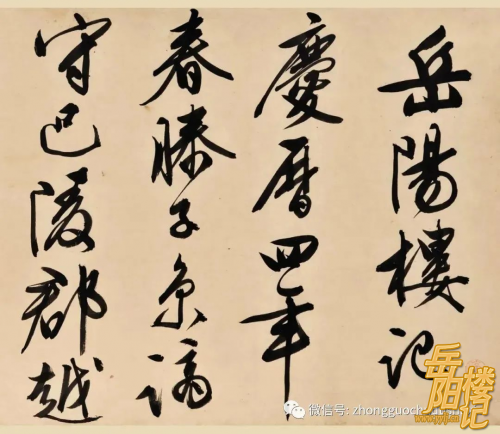 岳陽樓记
慶曆四年
春滕子京谪
守巴陵郡越
微信号: zhongguoch
岳阳楼记